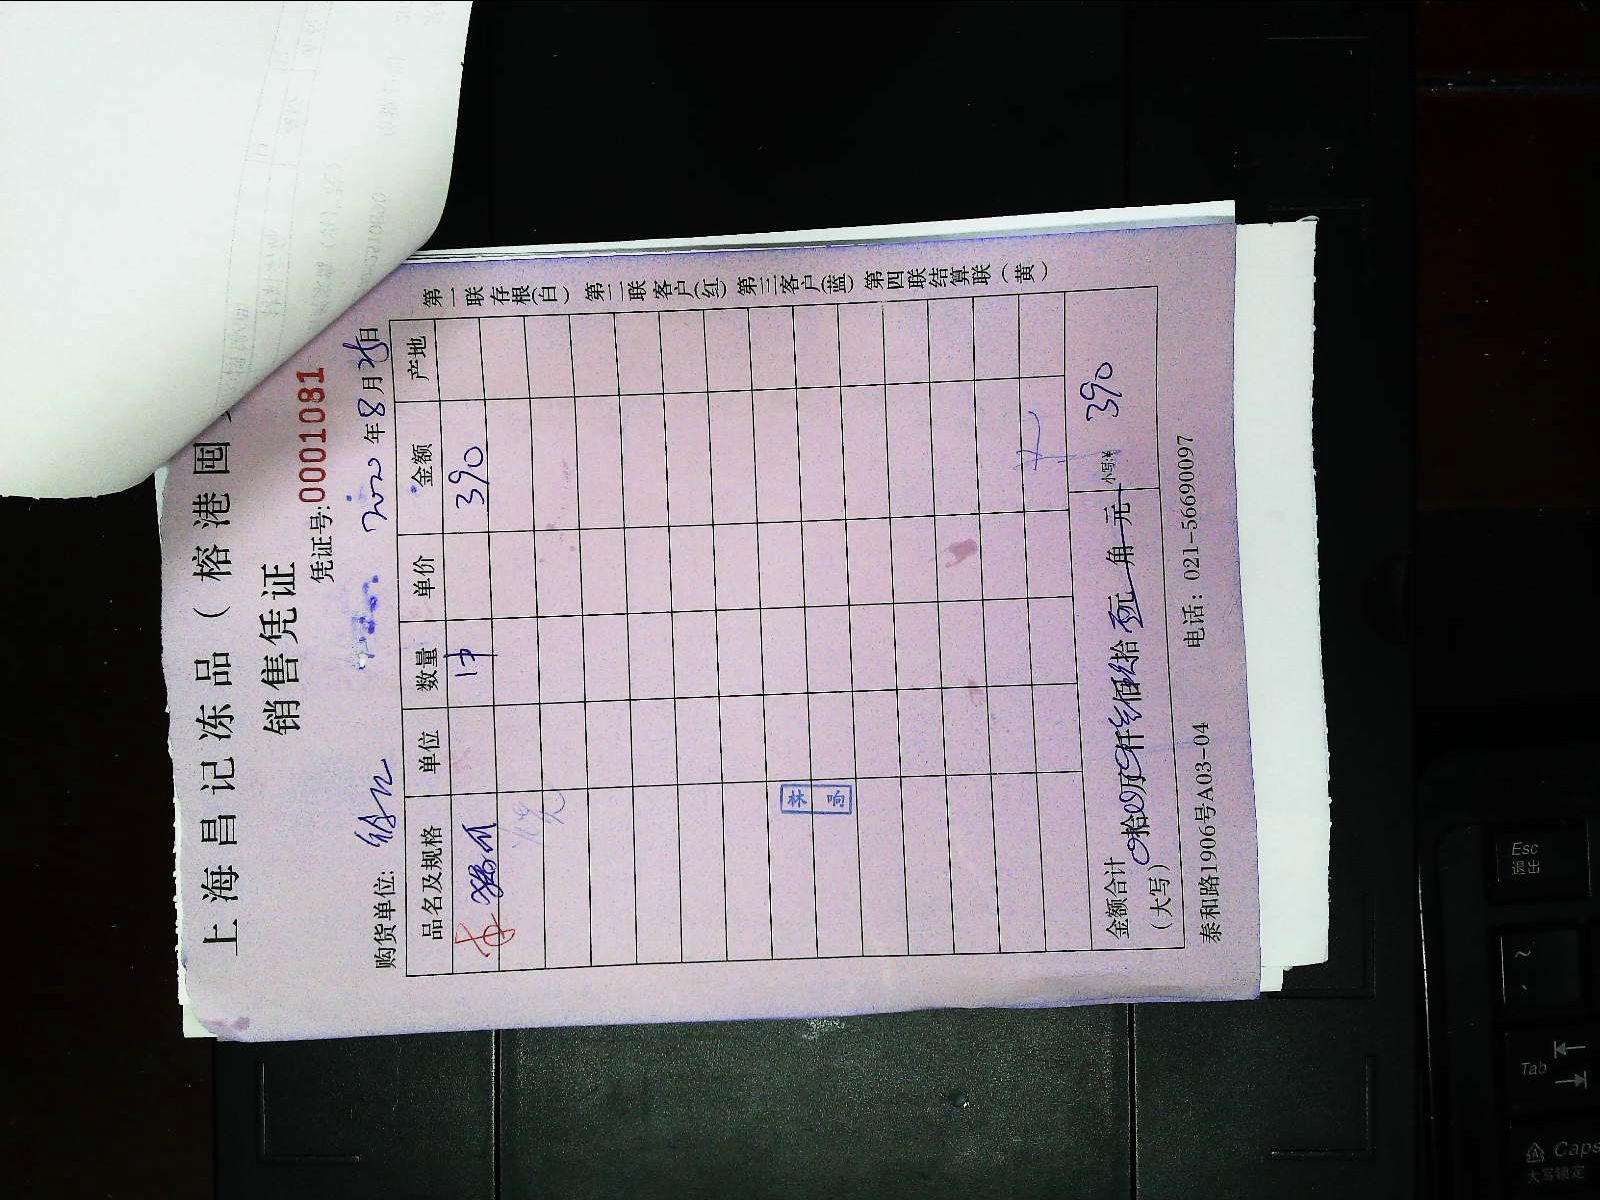 上海昌记冻品（榕港囤
销售凭证
凭证号:0001081
购货单位: 2022年8月25日
品名及规格 单位 数量 单价 金额 产地
1件 390
林
金额合计（大写） 拾 万 仟 佰 拾 元 角 元 小写:¥ 390
泰和路1906号A03-04 电话：021-56690097
第一联存根(白) 第二联客户(红) 第三客户(蓝) 第四联结算联（黄）
Esc
退出
~
Tab
Caps
大写锁定